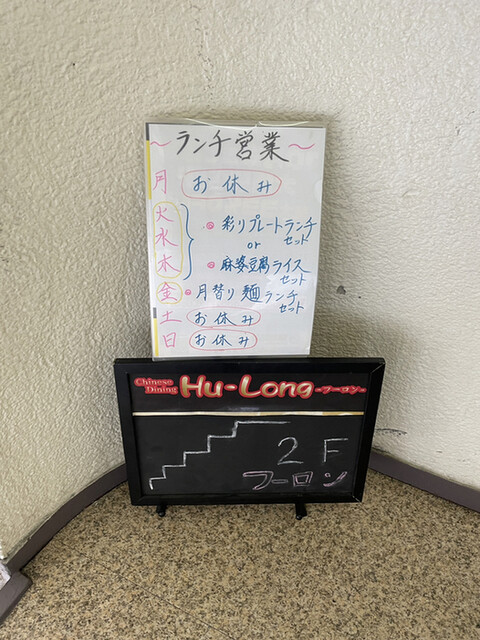 ～ランチ営業～
月 お休み
火 彩りプレートランチセット
水 or
木 麻婆豆腐ライスセット
金 月替り麺ランチセット
土 お休み
日 お休み
Chinese Dining Hu-Long -フーロン-
2F
フーロン